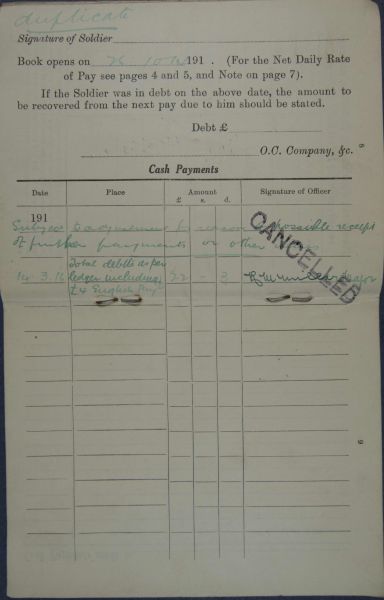 duplicate
Signature of Soldier
Book opens on 191 . (For the Net Daily Rate
of Pay see pages 4 and 5, and Note on page 7).
If the Soldier was in debt on the above date, the amount to
be recovered from the next pay due to him should be stated.
Debt £
O.C. Company, &c.
9
Cash Payments
Date Place Amount Signature of Officer
£ s. d.
191
Subject to adjustment by reason of possible receipt
of further payments or other
CANCELLED
Total debits as per
14. 3. 16 ledger including 22 - 3 Major
£4 English Pay
9